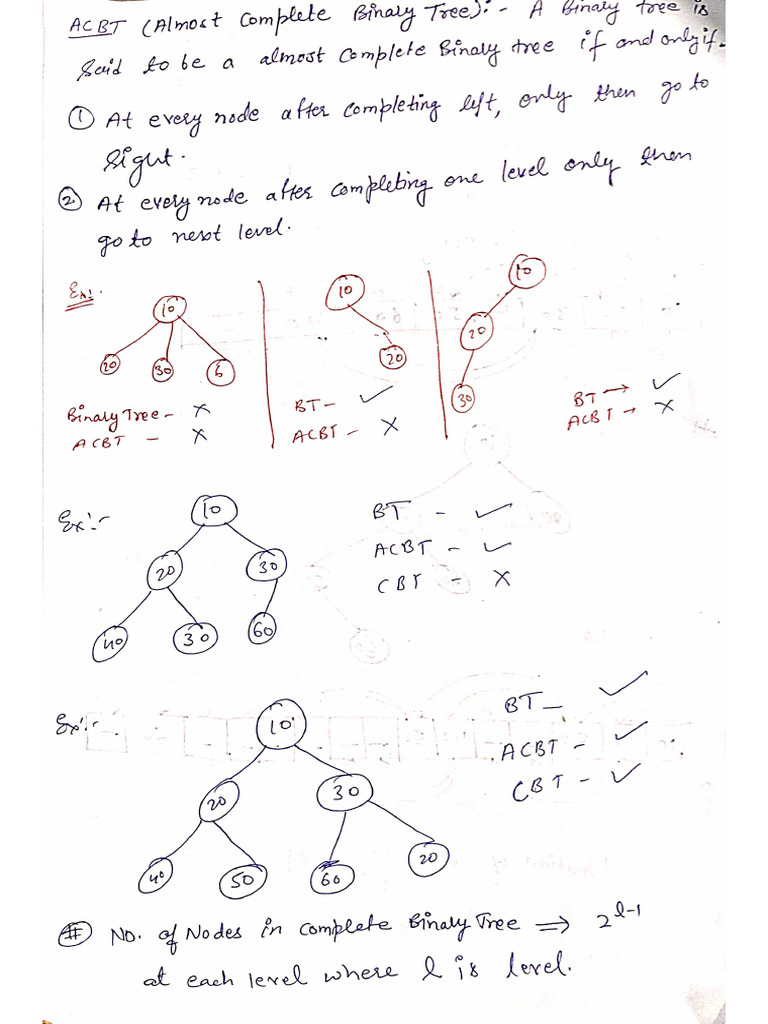 ACBT (Almost Complete Binary Tree):- A Binary tree is
said to be a almost complete Binary tree if and only if.
① At every node after completing left, only then go to
right.
② At every node after completing one level only then
go to next level.
Ex:-
10
20 30 6
Binary Tree - ✗
ACBT - ✗
10
20
BT - ✓
ACBT - ✗
10
20
30
BT → ✓
ACBT → ✗
Ex:-
10
20 30
40 30 60
BT - ✓
ACBT - ✓
CBT - ✗
Ex:-
10
20 30
40 50 60 20
BT - ✓
ACBT - ✓
CBT - ✓
# No. of Nodes in complete Binary Tree ⇒ 2^l-1
at each level where l is level.